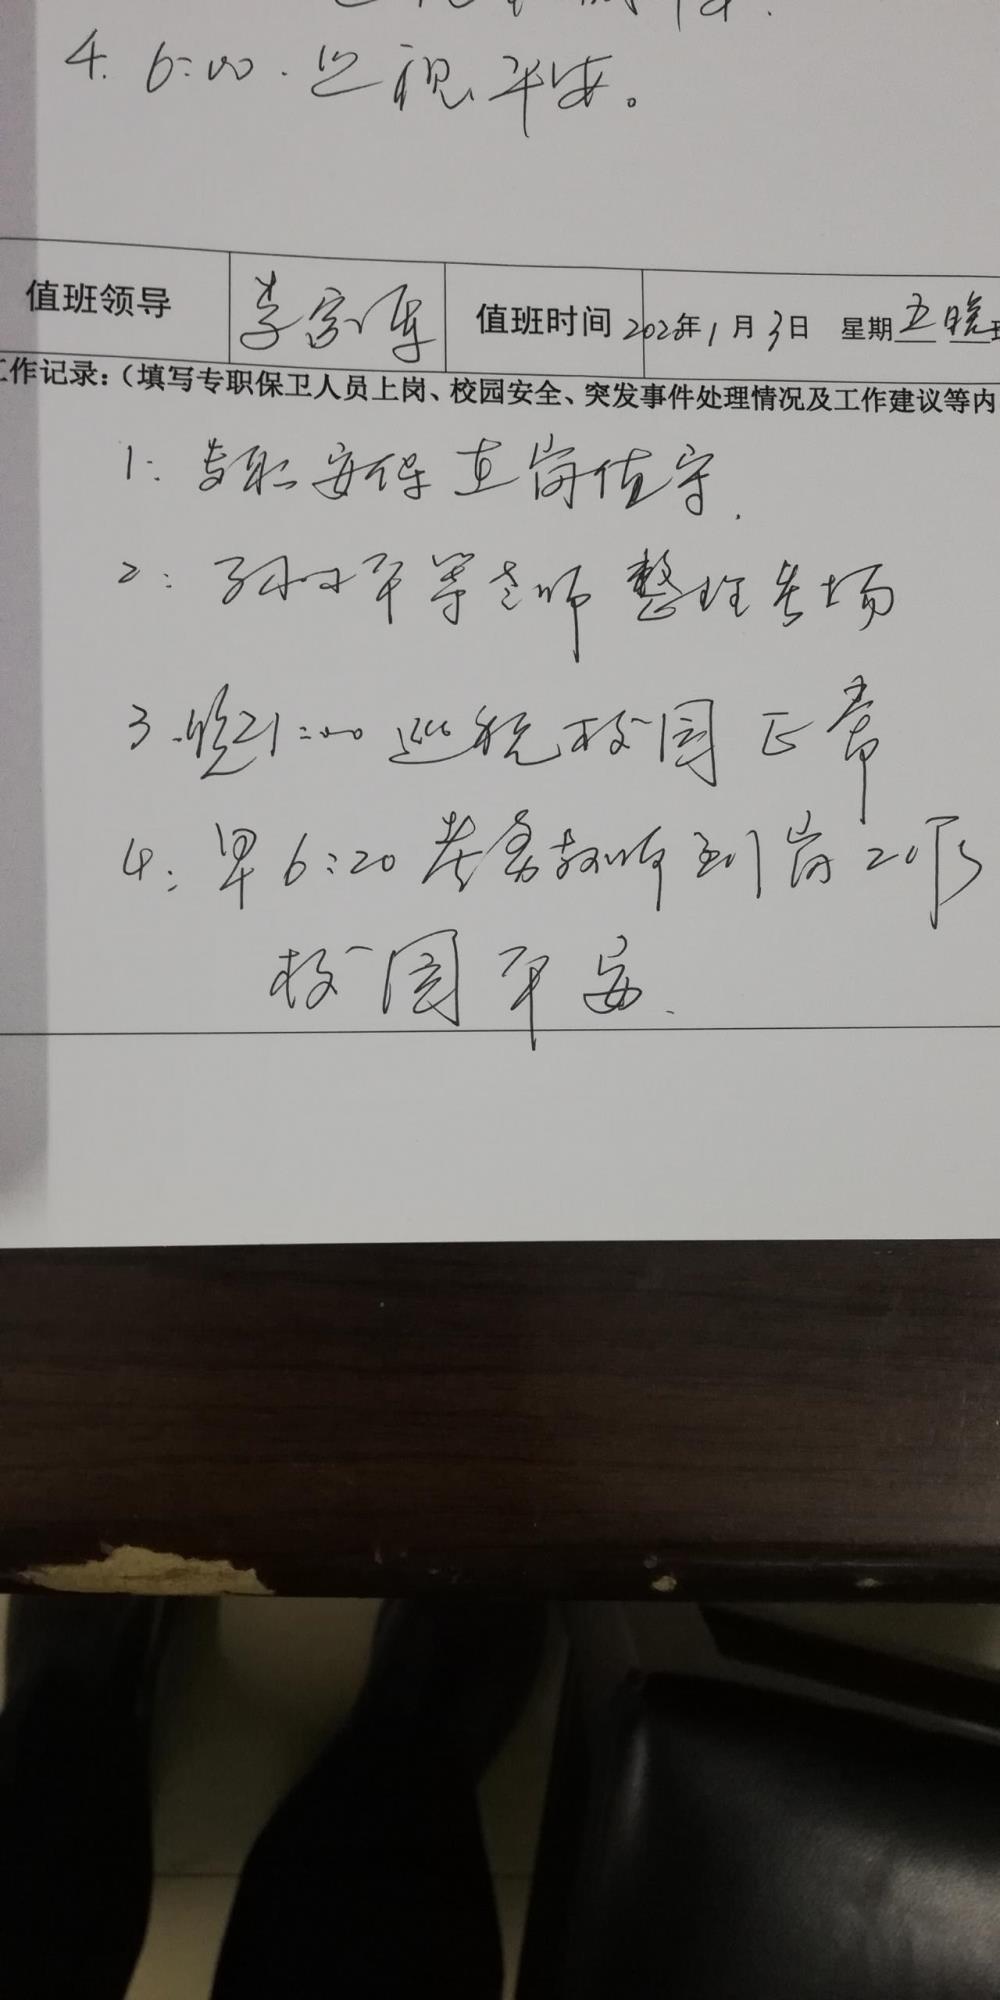 4. 6:00. 巡视平安。
值班领导 李家军 值班时间 2020年1月3日 星期五晚班
工作记录：（填写专职保卫人员上岗、校园安全、突发事件处理情况及工作建议等内
1: 专职安保在岗值守.
2: 孙小平等老师整理考场
3. 晚21:00巡视校园正常
4: 早6:20考务教师到岗20所
校园平安.